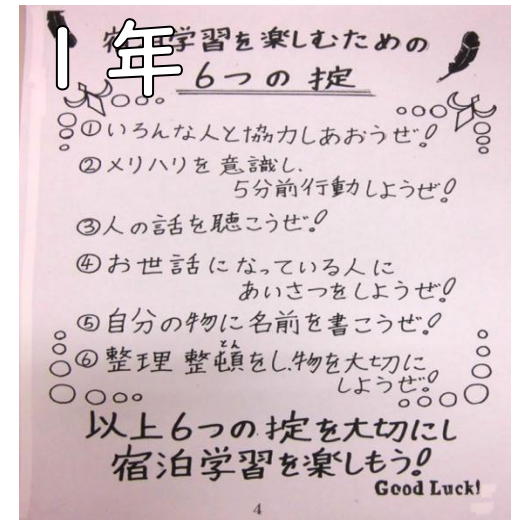 1年
宿泊学習を楽しむための
6つの掟
①いろんな人と協力しあおうぜ!
②メリハリを意識し、
5分前行動しようぜ!
③人の話を聴こうぜ!
④お世話になっている人に
あいさつをしようぜ!
⑤自分の物に名前を書こうぜ!
とん
⑥整理整頓をし、物を大切に
しようぜ!
以上6つの掟を大切にし
宿泊学習を楽しもう!
Good Luck!
4